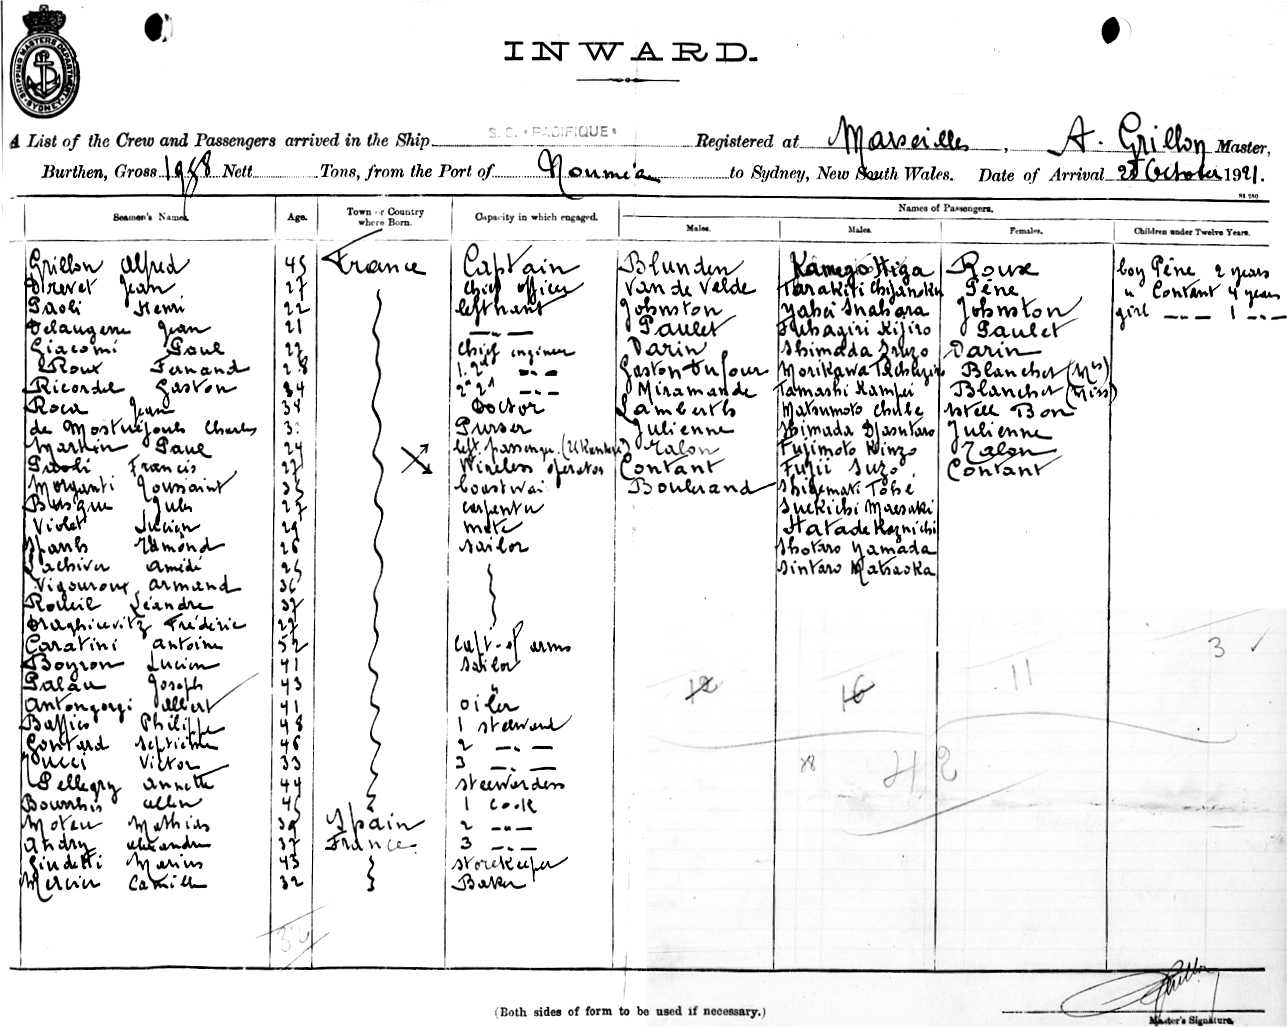 SHIPPING MASTERS DEPARTMENT SYDNEY
INWARD.
A List of the Crew and Passengers arrived in the Ship S.S. "PACIFIQUE" Registered at Marseilles, A. Grillon Master,
Burthen, Gross 1958 Nett Tons, from the Port of Nouméa to Sydney, New South Wales. Date of Arrival October 1921.
Seamen's Names. Age. Town or Country where Born. Capacity in which engaged. Names of Passengers.
Males. Males. Females. Children under Twelve Years.
Grillon Alfred 45 France Captain Blunden Kamezo Higa Roux boy Péne 2 years
Jean 27 chief officer Van de Velde Péne " Contant 4 years
Paoli Henri 22 lieftnant Johnston Yabei Johnston girl —"— 1 —"—
Delaugerre Jean 21 —"— Paulet Kijiro Paulet
Giacomi Paul 22 Chief engineer Darin Shimada Darin
Roux Fernand 28 1. 2d —"— Gaston Dufour Morikawa Blanchet (Mrs)
Ricordel Gaston 34 2d 2d —"— Miramande Tamashi Kampei Blanchet (Miss)
Roca Jean 34 Doctor Lamberth Matsumoto Stell Bon
de Mostuejouls Charles 3 Purser Julienne Shimada Julienne
Martin Paul 24 left. passenger Talon Fujimoto Kinzo Talon
Paoli Francis 27 Wireless operator Contant Fujii Suzo Contant
Morganti Toussaint Bouteraud Shigemati Tobé
Busque Jules 27 carpenter Suekichi Maesaki
Violet Lucien 29 mate Hatade
Spanh Edmond 26 sailor Shotaro Yamada
Lachiver Amédé 26 Sintaro Matsaoka
Vigouroux armand 36
Roueil Léandre 37
Draghicevitz Frédéric 27
Caratini antoine 52 capt. of arms
Boyron Lucien 41 sailor 3
Palau Joseph 43 " 12 16 11
Antongorgi Albert 41 oiler
Baffico Philippe 48 1 steeward
Gontard Septieme 46 2 —"—
Pucci Victor 33 3 —"— 42
Pellegry Annette 44 steewardess
Bourrhis allen 45 1 cook
Moteu Mathias 39 Spain 2 —"—
Andry alexandre 37 France 3 —"—
Giudetti Marius 43 storekeeper
Mercier Camille 32 Baker
32
(Both sides of form to be used if necessary.)
Master's Signature.